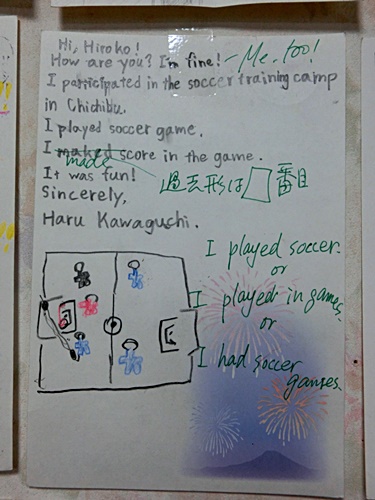 Hi, Hiroko!
How are you? I'm fine! - Me, too!
I participated in the soccer training camp
in Chichibu.
I played soccer game.
I maked score in the game.
made
It was fun!
過去形は□番目
Sincerely,
Haru Kawaguchi.
I played soccer.
or
I played in games.
or
I had soccer
games.